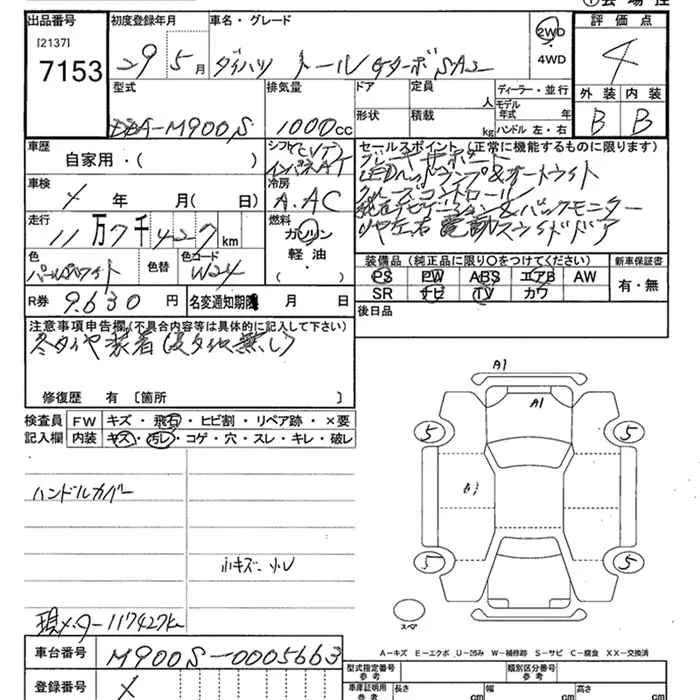 出品番号 初度登録年月 車名・グレード 評価点
[2137]
7153
29 5月 ダイハツ トール GターボSAⅡ
2WD
4WD
4
型式 排気量 ドア 定員 人 ディーラー・並行 外装 内装
DBA-M900S 1000cc 形状 積載 kg モデル年式 年 ハンドル 左・右 B B
車歴 自家用・( ) シフト(CVT) インパネAT
セールスポイント(正常に機能するものに限ります)
LEDヘッドランプ&オートライト
クルーズコントロール
純正ナビゲーション&バックモニター
左右電動スライドドア
車検 年 月( 日) 冷房 A.AC
走行 11万7千427km 燃料 ガソリン・軽油・( )
色 パールホワイト 色替 色コード W24
装備品(純正品に限り○をつけてください) 新車保証書
PS PW ABS エアB AW 有・無
SR ナビ TV カワ
R券 9,630円 名変通知期限 月 日 後日品
注意事項申告欄(不具合内容等は具体的に記入して下さい)
冬タイヤ装着(夏タイヤ無し)
修復歴 有〔箇所 〕
検査員記入欄 FW キズ・飛石・ヒビ割・リペア跡・×要
内装 キズ・汚レ・コゲ・穴・スレ・キレ・破レ
ハンドルカバー
小キズ・小U
現メーター117427km
A1
A1
5 5
B1
5 5
スペア
A-キズ E-エクボ U-凹み W-補修跡 S-サビ C-腐食 XX-交換済
車台番号 M900S-0005663
登録番号
型式指定番号 参考 類別区分番号 参考
車庫証明用 参考 長さ cm 幅 cm 高さ cm